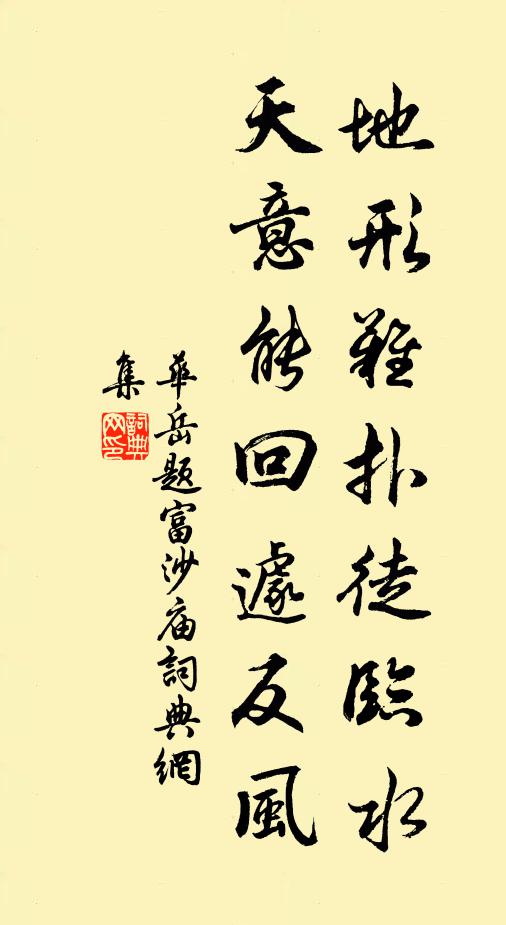 地形難扑徒臨水
天意能回遽反風
華岳題富沙庙詞典網
集
詞典
网印